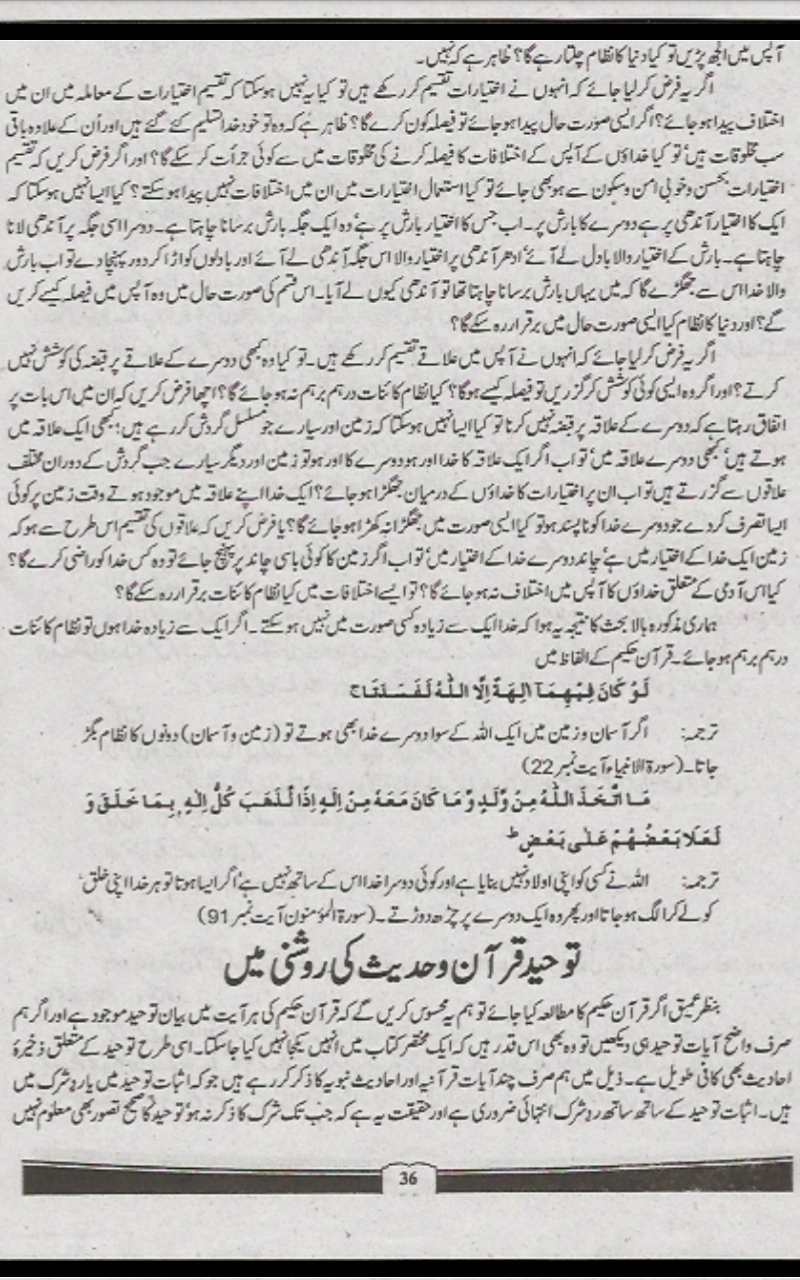 آپس میں الجھ پڑیں تو کیا دنیا کا نظام چلتا رہے گا؟ ظاہر ہے کہ نہیں۔
اگر یہ فرض کر لیا جائے کہ انہوں نے اختیارات تقسیم کر رکھے ہیں تو کیا یہ نہیں ہو سکتا کہ تقسیم اختیارات کے معاملہ میں ان میں
اختلاف پیدا ہو جائے؟ اگر ایسی صورت حال پیدا ہو جائے تو فیصلہ کون کرے گا؟ ظاہر ہے کہ وہ تو خود خدا تسلیم کئے گئے ہیں اور اُن کے علاوہ باقی
سب مخلوقات ہیں‘ تو کیا خداؤں کے آپس کے اختلافات کا فیصلہ کرنے کی مخلوقات میں سے کوئی جرأت کر سکے گا؟ اور اگر فرض کریں کہ تقسیم
اختیارات بحسن و خوبی امن و سکون سے ہو بھی جائے تو کیا استعمال اختیارات میں ان میں اختلافات نہیں پیدا ہو سکتے؟ کیا ایسا نہیں ہو سکتا کہ
ایک کا اختیار آندھی پر ہے دوسرے کا بارش پر۔ اب جس کا اختیار بارش پر ہے‘ وہ ایک جگہ بارش برسانا چاہتا ہے۔ دوسرا اسی جگہ پر آندھی لانا
چاہتا ہے۔ بارش کے اختیار والا بادل لے آئے‘ ادھر آندھی پر اختیار والا اس جگہ آندھی لے آئے اور بادلوں کو اڑا کر دور پہنچا دے تو اب بارش
والا خدا اس سے جھگڑے گا کہ میں یہاں بارش برسانا چاہتا تھا تو آندھی کیوں لے آیا۔ اس قسم کی صورت حال میں وہ آپس میں فیصلہ کیسے کریں
گے؟ اور دنیا کا نظام کیا ایسی صورت حال میں برقرار رہ سکے گا؟
اگر یہ فرض کر لیا جائے کہ انہوں نے آپس میں علاقے تقسیم کر رکھے ہیں۔ تو کیا وہ کبھی دوسرے کے علاقے پر قبضہ کی کوشش نہیں
کرتے؟ اور اگر وہ ایسی کوئی کوشش کر گزریں تو فیصلہ کیسے ہوگا؟ کیا نظام کائنات درہم برہم نہ ہو جائے گا؟ اچھا فرض کریں کہ ان میں اس بات پر
اتفاق رہتا ہے کہ دوسرے کے علاقہ پر قبضہ نہیں کرنا تو کیا ایسا نہیں ہو سکتا کہ زمین اور سیارے جو مسلسل گردش کر رہے ہیں‘ کبھی ایک علاقہ میں
ہوتے ہیں‘ کبھی دوسرے علاقہ میں‘ تو اب اگر ایک علاقہ کا خدا اور ہو دوسرے کا اور ہو تو زمین اور دیگر سیارے جب گردش کے دوران مختلف
علاقوں سے گزرتے ہیں تو اب ان پر اختیارات کا خداؤں کے درمیان جھگڑا ہو جائے؟ ایک خدا اپنے علاقہ میں موجود ہوتے وقت زمین پر کوئی
ایسا تصرف کر دے جو دوسرے خدا کو ناپسند ہو تو کیا ایسی صورت میں جھگڑا نہ کھڑا ہو جائے گا؟ یا فرض کریں کہ علاقوں کی تقسیم اس طرح سے ہو کہ
زمین ایک خدا کے اختیار میں ہے‘ چاند دوسرے خدا کے اختیار میں‘ تو اب اگر زمین کا کوئی باسی چاند پر پہنچ جائے تو وہ کس خدا کو راضی کرے گا؟
کیا اس آدمی کے متعلق خداؤں کا آپس میں اختلاف نہ ہو جائے گا؟ تو ایسے اختلافات میں کیا نظام کائنات برقرار رہ سکے گا؟
ہماری مذکورہ بالا بحث کا نتیجہ یہ ہوا کہ خدا ایک سے زیادہ کسی صورت میں نہیں ہو سکتے۔ اگر ایک سے زیادہ خدا ہوں تو نظام کائنات
درہم برہم ہو جائے۔ قرآن حکیم کے الفاظ میں
لَوْ كَانَ فِيْهِمَآ اٰلِهَةٌ اِلَّا اللّٰهُ لَفَسَدَتَا ج
ترجمہ: اگر آسمان و زمین میں ایک اللہ کے سوا دوسرے خدا بھی ہوتے تو (زمین و آسمان) دونوں کا نظام بگڑ
جاتا۔ (سورۃ الانبیاء آیت نمبر 22)
مَا اتَّخَذَ اللّٰهُ مِنْ وَّلَدٍ وَّمَا كَانَ مَعَهٗ مِنْ اِلٰهٍ اِذًا لَّذَهَبَ كُلُّ اِلٰهٍ بِمَا خَلَقَ وَ
لَعَلَا بَعْضُهُمْ عَلٰى بَعْضٍ ط
ترجمہ: اللہ نے کسی کو اپنی اولاد نہیں بنایا ہے اور کوئی دوسرا خدا اس کے ساتھ نہیں ہے‘ اگر ایسا ہوتا تو ہر خدا اپنی خلق
کو لے کر الگ ہو جاتا اور پھر وہ ایک دوسرے پر چڑھ دوڑتے۔ (سورۃ المؤمنون آیت نمبر 91)
توحید قرآن و حدیث کی روشنی میں
بنظر عمیق اگر قرآن حکیم کا مطالعہ کیا جائے تو ہم یہ محسوس کریں گے کہ قرآن حکیم کی ہر آیت میں بیان توحید موجود ہے اور اگر ہم
صرف واضح آیات توحید ہی دیکھیں تو وہ بھی اس قدر ہیں کہ ایک مختصر کتاب میں انہیں یکجا نہیں کیا جا سکتا۔ اسی طرح توحید کے متعلق ذخیرۂ
احادیث بھی کافی طویل ہے۔ ذیل میں ہم صرف چند آیات قرآنیہ اور احادیث نبویہ کا ذکر کر رہے ہیں جو کہ اثبات توحید میں یا رد شرک میں
ہیں۔ اثبات توحید کے ساتھ ساتھ رد شرک انتہائی ضروری ہے اور حقیقت یہ ہے کہ جب تک شرک کا ذکر نہ ہو‘ توحید کا صحیح تصور بھی معلوم نہیں
36